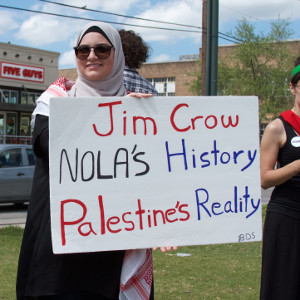 FIVE GUYS
Jim Crow
NOLA'S History
Palestine's Reality
BDS